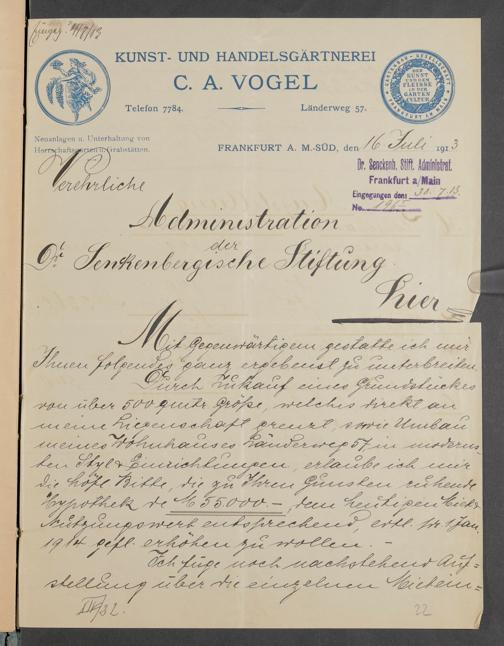 KUNST- UND HANDELSGÄRTNEREI
C. A. VOGEL
Telefon 7784.
Länderweg 57.
GARTENBAU-GESELLSCHAFT
FRANKFURT AM MAIN
DER
KUNST
UND DEM
FLEISSE
IN DER
GARTEN
CULTUR
Neuanlagen u. Unterhaltung von
Herrschaftsgärten u. Grabstätten.
FRANKFURT A. M.-SÜD, den 16 Juli 1913
Dr. Senckenb. Stift. Administrat.
Frankfurt a/Main
Eingegangen den:
No.
Verehrliche
Administration
der
Dr. Senkenbergische Stiftung
hier
Mit Gegenwärtigem gestatte ich mir
Ihnen folgendes ganz ergebenst zu unterbreiten.
Durch Zukauf eines Grundstückes
von über 500 qmtr Größe, welches direkt an
meine Liegenschaft grenzt, sowie Umbau
meines Wohnhauses Länderweg 57 in moderns-
ten Styl & Einrichtungen, erlaube ich mir
die höfl. Bitte, die zu Ihren Gunsten ruhende
Hypothek de M 55.000.-, dem heutigen Miet &
Nutzungswert entsprechend, evtl. pr 1 Jan.
1914 gefl. erhöhen zu wollen. -
Ich füge noch nachstehend Auf-
stellung über die einzelnen Mietein-
22